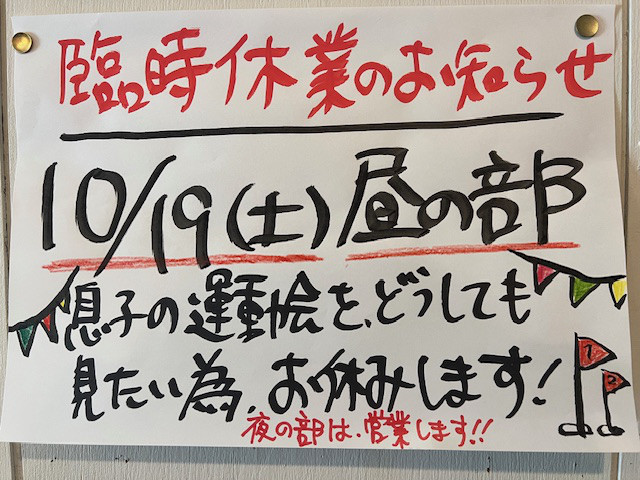 臨時休業のお知らせ
10/19(土)昼の部
息子の運動会を、どうしても
見たい為、お休みします!
夜の部は、営業します!!
1
2